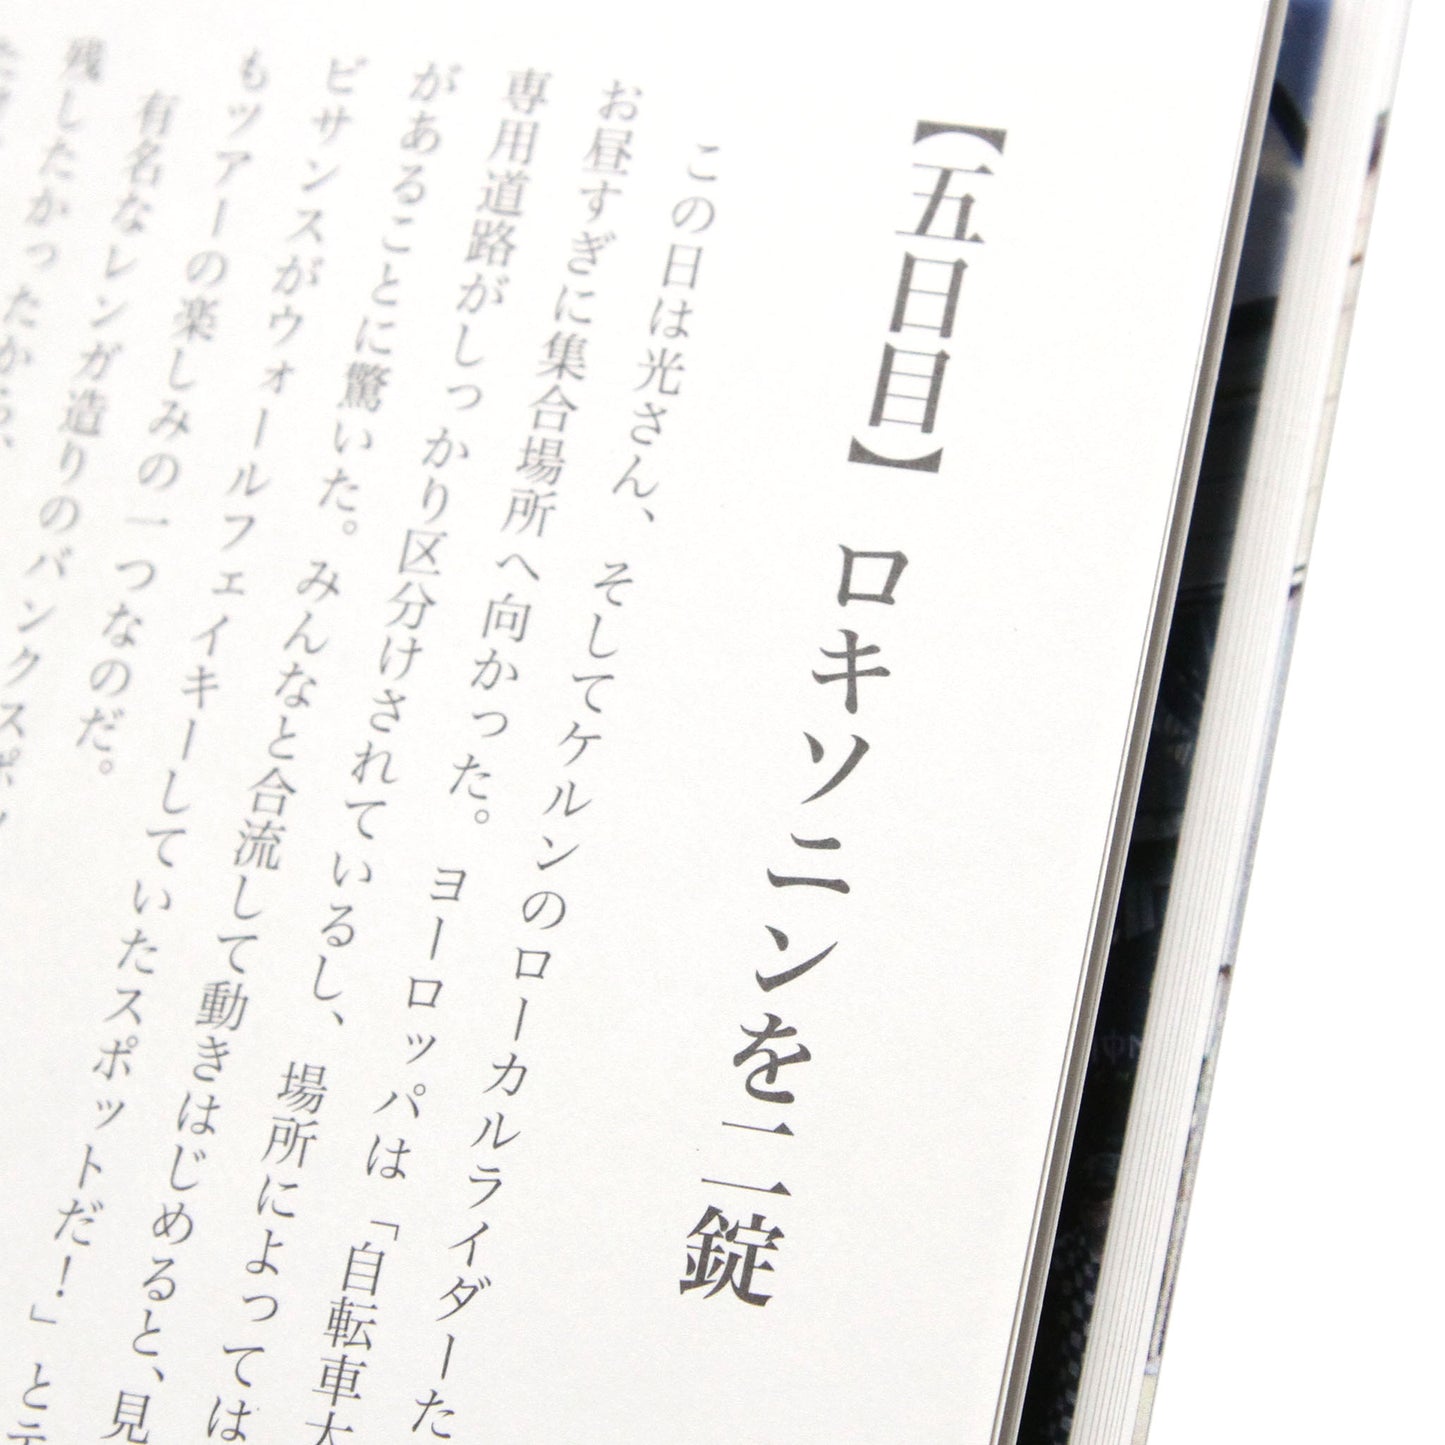 【五日目】ロキソニンを二錠
この日は光さん、そしてケルンのローカルライダーた
お昼すぎに集合場所へ向かった。ヨーロッパは「自転車大
専用道路がしっかり区分けされているし、場所によっては
があることに驚いた。みんなと合流して動きはじめると、見
ビサンスがウォールフェイキーしていたスポットだ！」とテ
もツアーの楽しみの一つなのだ。
有名なレンガ造りのバンクスポッ
残したかったから、